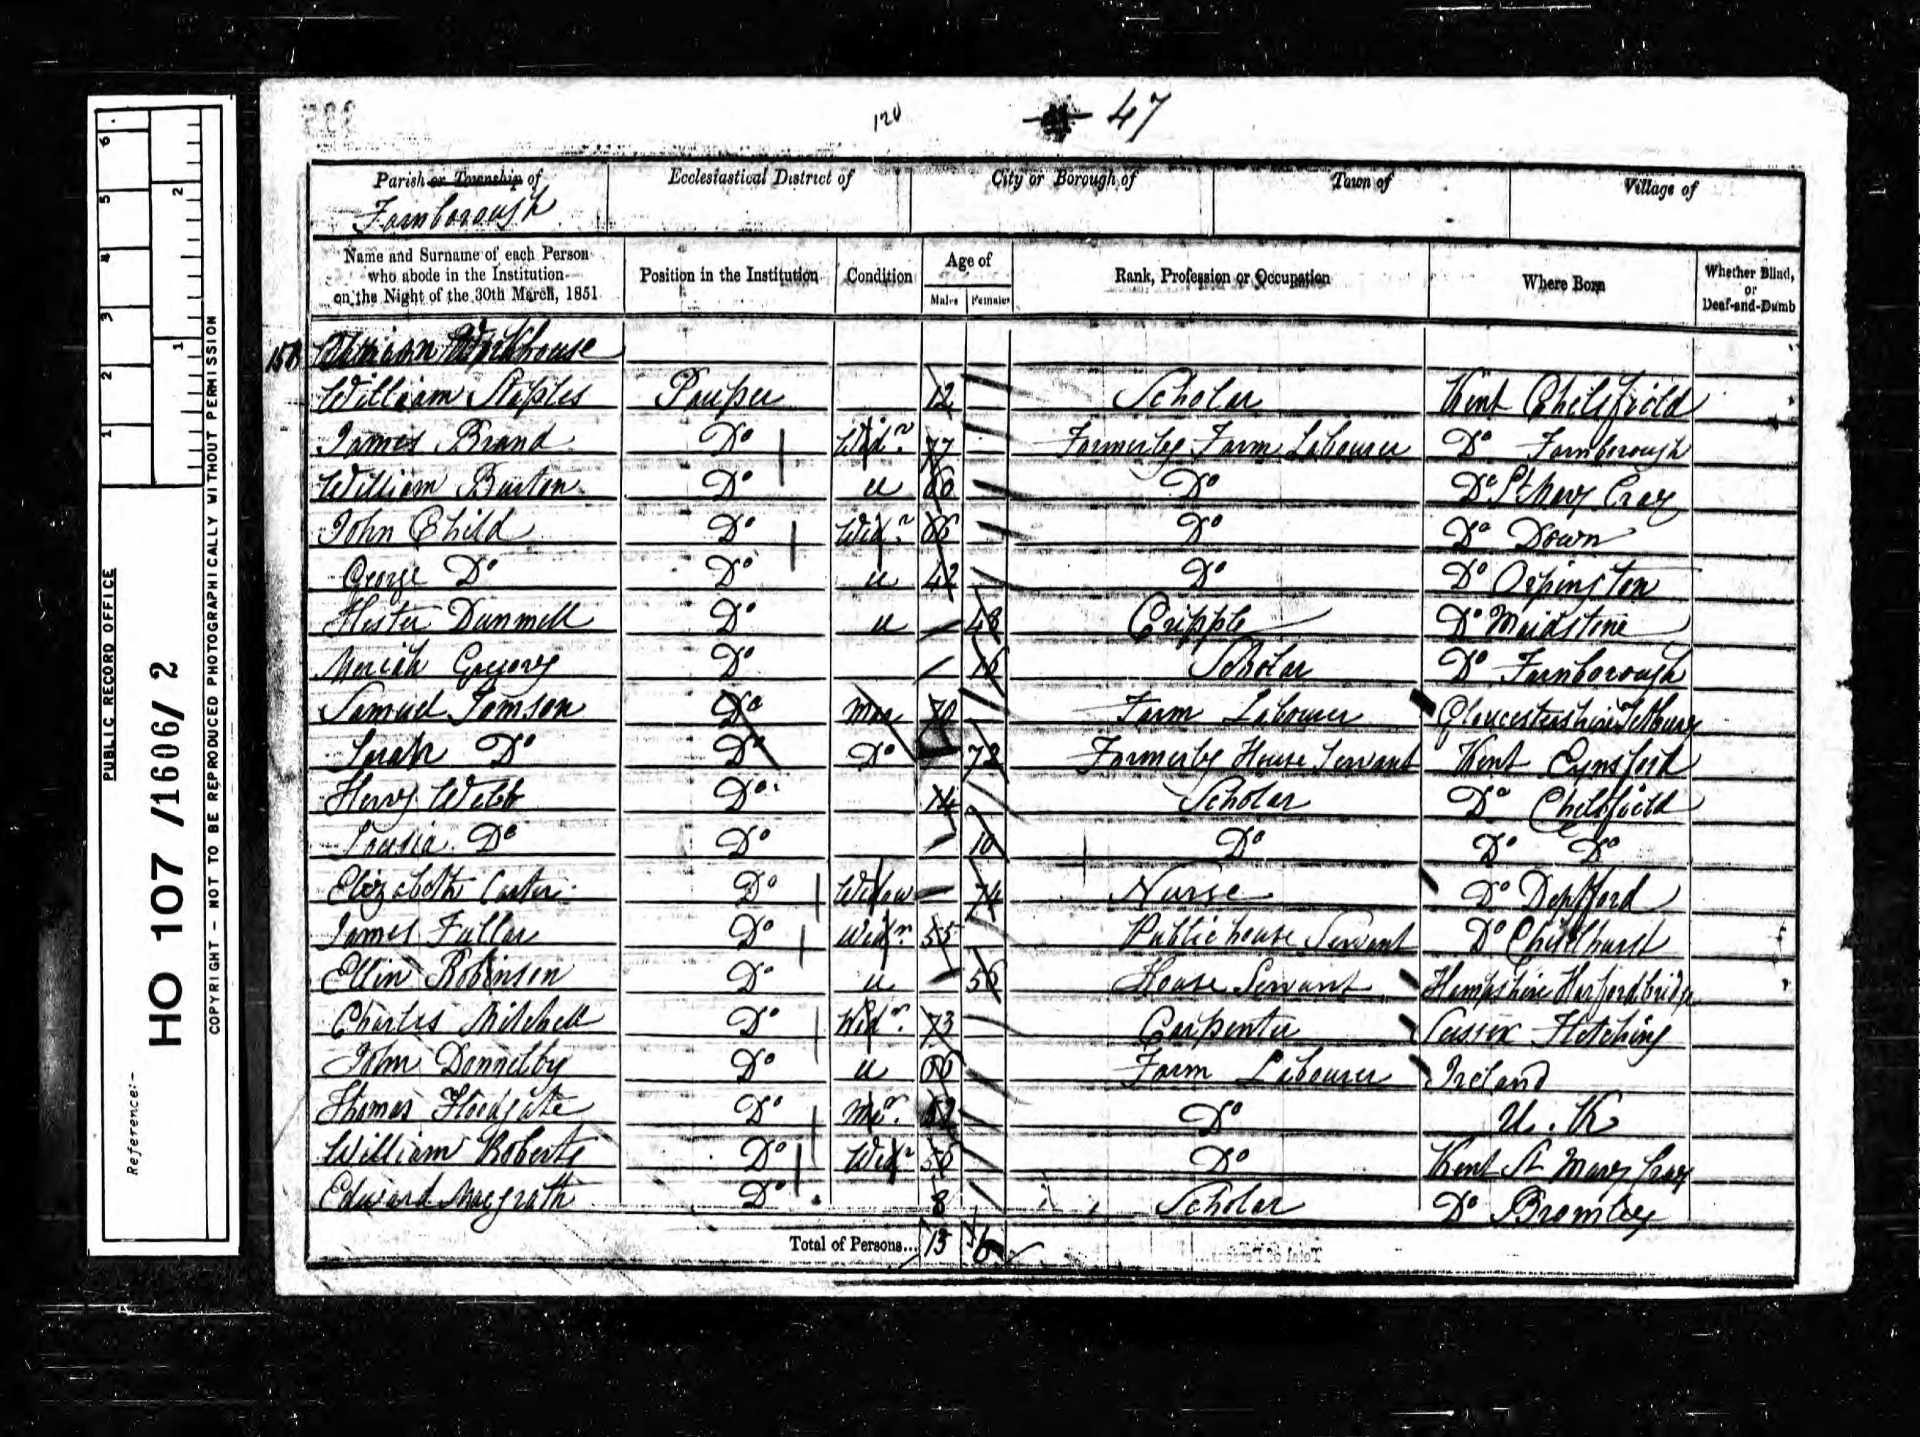 120 47
Parish or Township of Ecclesiastical District of City or Borough of Town of Village of
Farnborough
Name and Surname of each Person who abode in the Institution on the Night of the 30th March, 1851 Position in the Institution Condition Age of Males Females Rank, Profession or Occupation Where Born Whether Blind, or Deaf-and-Dumb
Workhouse
William Staples Pauper 12 Scholar Kent Chelsfield
James Brand Do Widr 77 Formerly Farm Labourer Do Farnborough
William Burton Do u Do Do St Mary Cray
John Child Do Widr Do Do Down
George Do Do u 42 Do Do Orpington
Hester Dunmell Do u 48 Cripple Do Maidstone
Moriah Gregory Do 16 Scholar Do Farnborough
Samuel Tomson Do Mar 70 Farm Labourer Gloucestershire Tetbury
Sarah Do Do Do 72 Formerly House Servant Kent Eynsford
Henry Webb Do 14 Scholar Do Chelsfield
Louisa Do Do 10 Do Do Do
Elizabeth Carter Do Widow 74 Nurse Do Deptford
James Fuller Do Widr 55 Publichouse Servant Do Chislhurst
Ellin Robinson Do u 56 House Servant Hampshire Harfordbridge
Charles Mitchell Do Widr 73 Carpenter Sussex Fletching
John Donnelby Do u Farm Labourer Ireland
Thomas Floodgate Do Mar Do U.K
William Roberts Do Widr 56 Do Kent St Mary Cray
Edward Macgrath Do 8 Scholar Do Bromley
Total of Persons... 13 6
PUBLIC RECORD OFFICE
Reference:-
HO 107 /1606/ 2
COPYRIGHT - NOT TO BE REPRODUCED PHOTOGRAPHICALLY WITHOUT PERMISSION
1 2 3 4 5 6
1 2